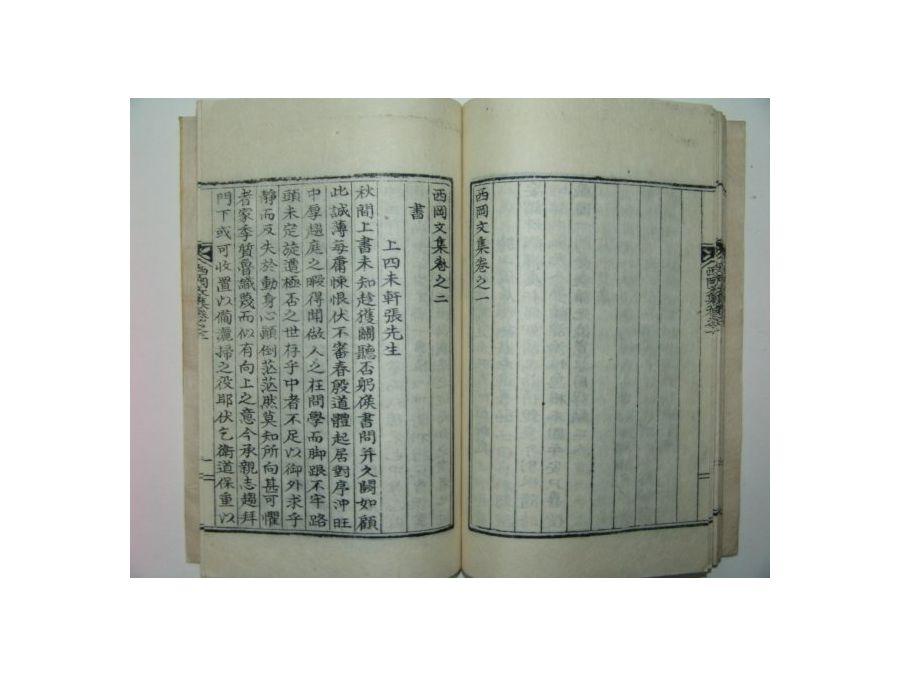 西岡文集卷之一
西岡文集卷之二
書
上四未軒張先生
秋間上書未知趍獲關聽否躬候書問并久闕如顧
此誠薄每庸悚恨伏不審春殷道體起居對序沖旺
中厚趨庭之暇得聞做人之在問學而脚跟不牢路
頭未定旋遭極否之世存乎中者不足以御外求乎
靜而反失於動身心顚倒茫茫然莫知所向甚可懼
者家季質魯識淺而似有向上之意今承親志趨拜
門下或可收置以備灑掃之役耶伏乞衛道保重以
西岡文集卷之二